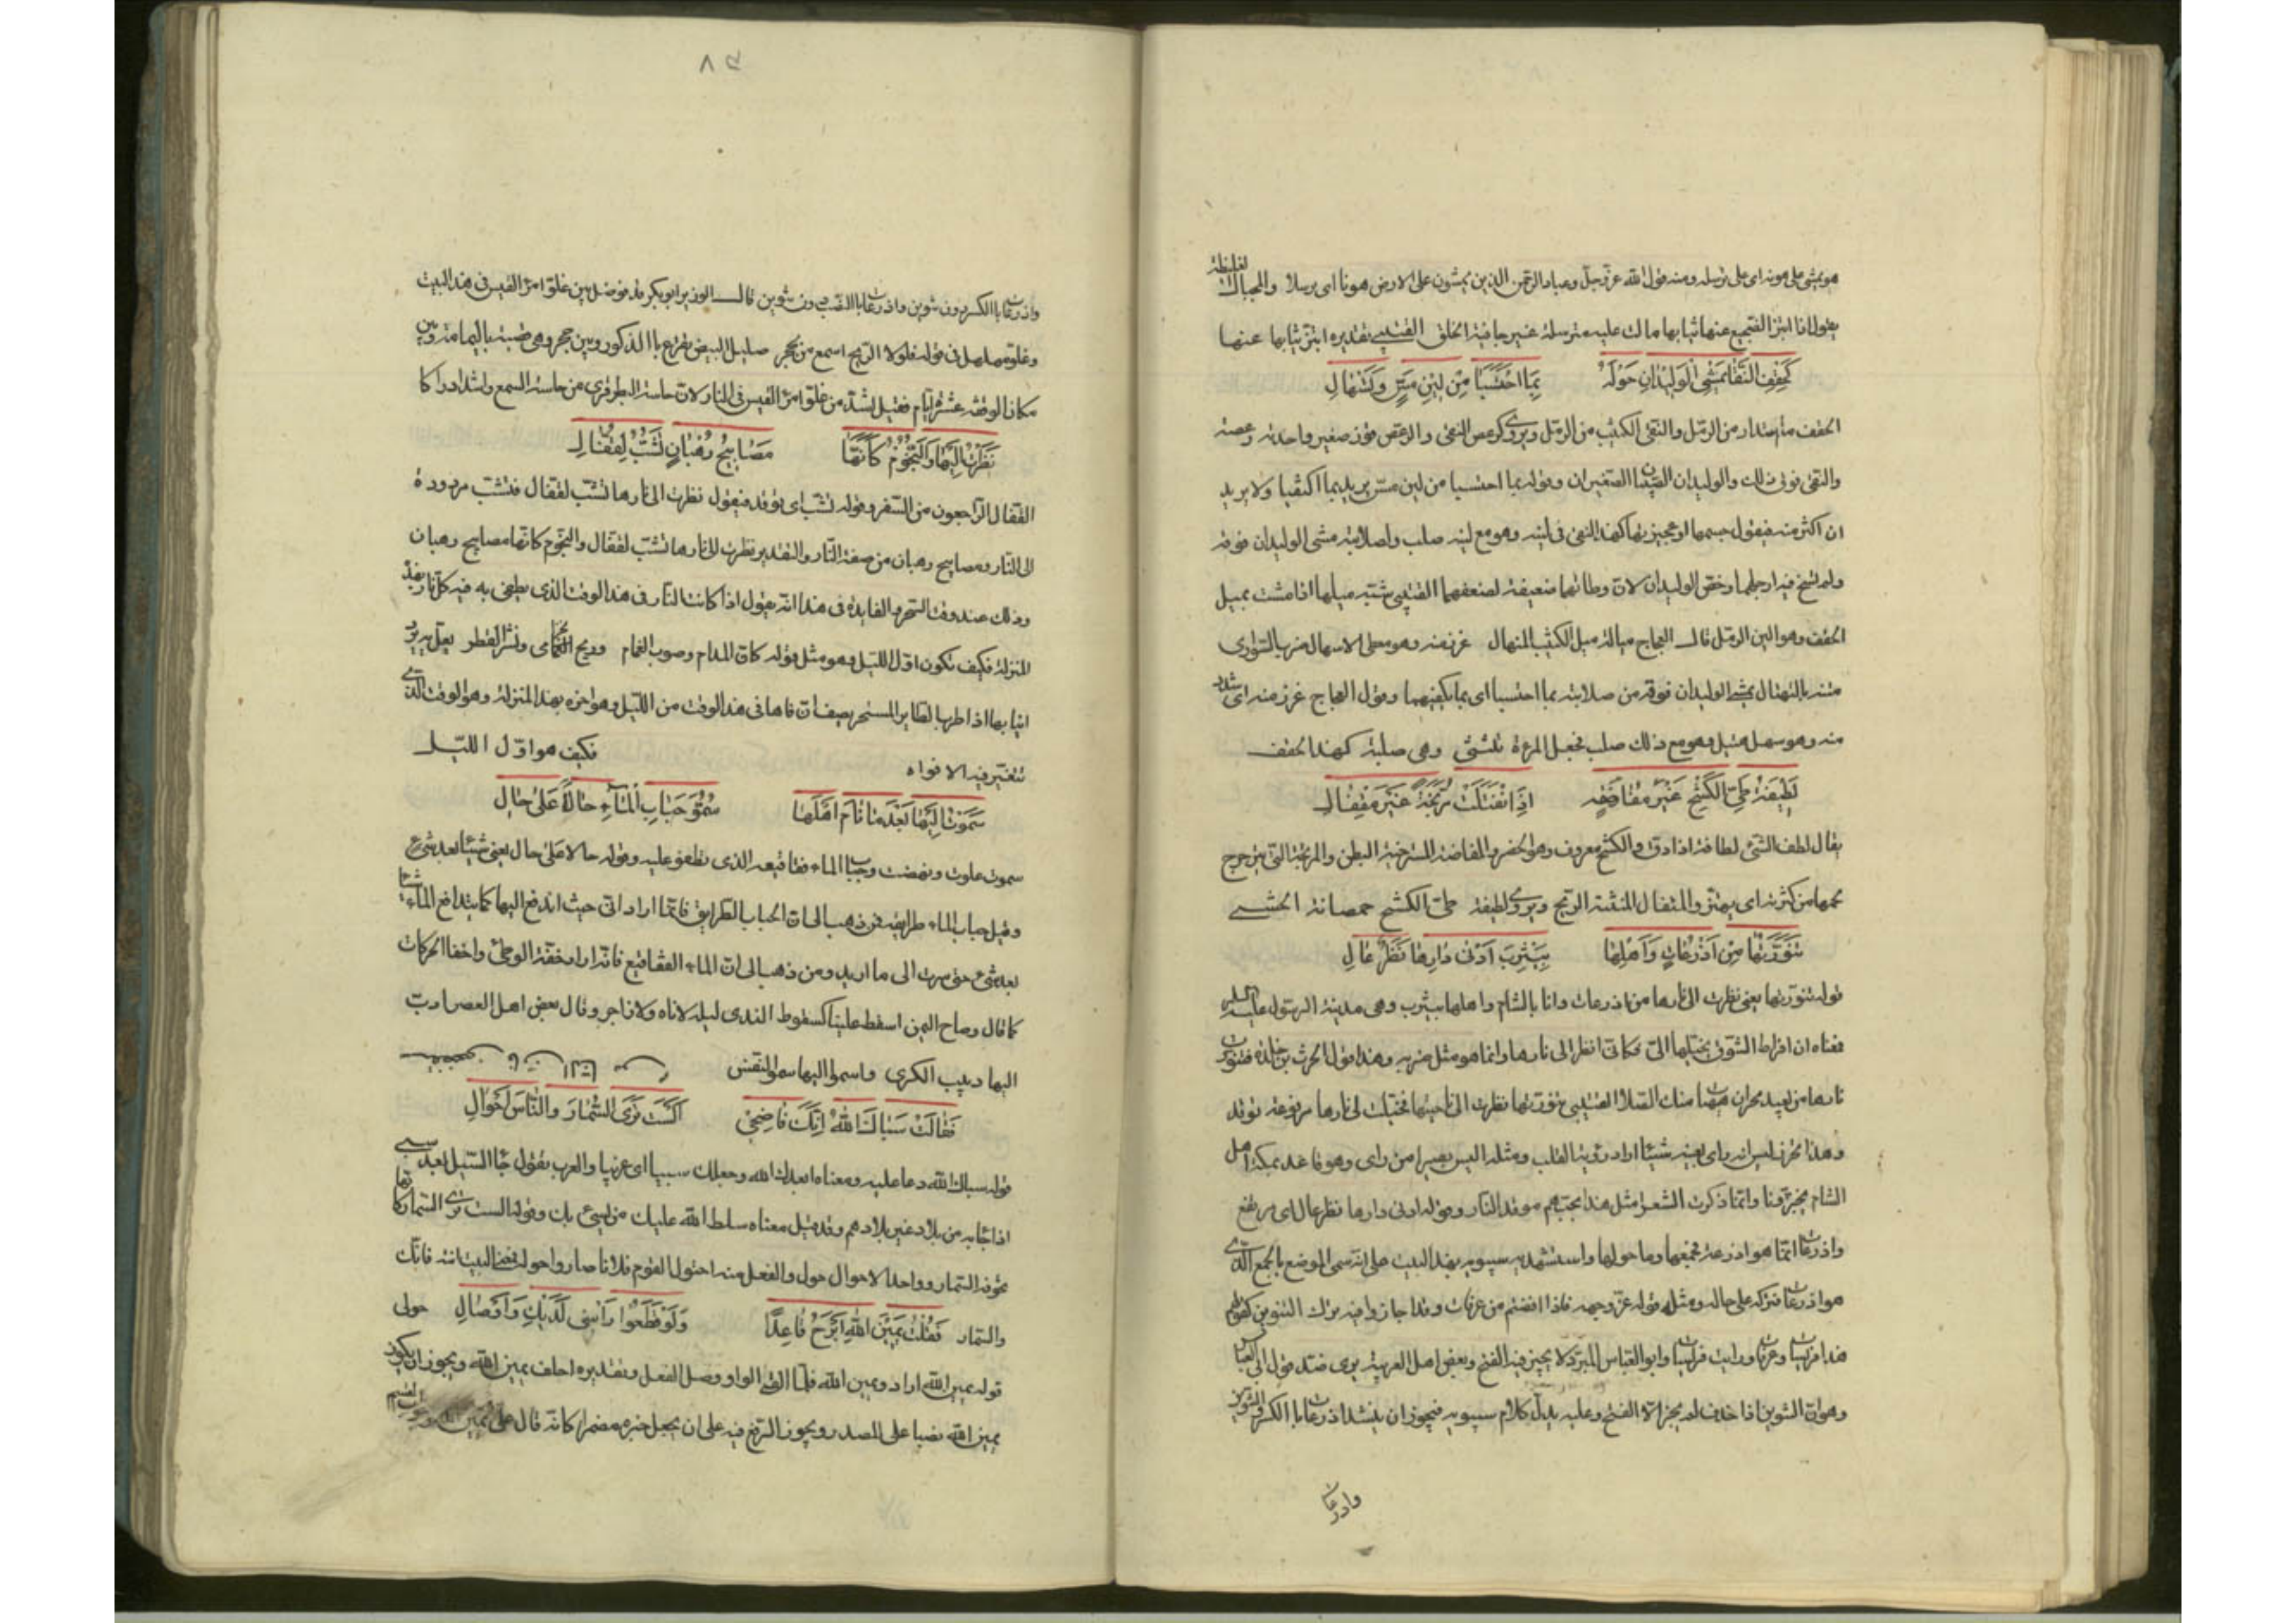 هو يمشي على هونه اى على ترسله ومنه قول الله عز وجل وعباد الرحمن الذين يمشون على الارض هونا اى ترسلا والمجبال الغليظة
يقول اذا ابتز الضجيع عنها ثيابها مالت عليه مترسلة غير جافية الخلق القتيبي تقديره ابتز ثيابها عنها
كَحِقْفِ النَّقَا يَمْشِى الوَلِيدَانِ حَوْلَهُ بِمَا احْتَسَبَا مِنْ لِينِ مَسٍّ وَتَسْهَالِ
الحقف ما استدار من الرمل والنقى الكثيب من الرمل ويروى كدعص النقى والدعص فوز صغير واحدته دعصة
والنقى فوق ذلك والوليدان الصبيان الصغيران وقوله بما احتسبا من لين مس يريد بما اكتفيا ولا يريد
ان اكثر منه فيقول جسمها او عجيزتها كهذا النقى فى لينه وهو مع لينه صلب ولصلابته مشى الوليدان فوقه
ولم تسخ فيه ارجلهما وخص الوليدان لان وطأتهما ضعيفة لضعفهما القتيبي شبه ميلها اذا مشت بميل
الحقف وهو الين الرمل قال العجاج ميالة ميل الكثيب المنهال غرز منه وهو معطى الاسهال ضرب السوارى
متنه بالتهتال يمشى الوليدان فوقه من صلابته بما احتسبا اى بما يكفيهما وقول العجاج غرز منه اى شدد
منه وهو سهل هيل وهو مع ذلك صلب فجعل المرءة تنثنى وهى صلبة كهذا الحقف
لَطِيفَةُ طَىِّ الكَشْحِ غَيْرُ مُفَاضَةٍ اِذَا انْفَتَلَتْ مُرْتَجَّةً غَيْرَ مِتْفَالِ
يقال لطف الشئ لطافة اذا دق والكشح معروف وهو الخصر والمفاضة المسترخية البطن والمرتجة التى يترجرج
لحمها من كثرته اى يهتز والمتفال المنتنة الريح ويروى لطيفة طى الكشح خمصانة الحشى
تَنَوَّرْتُهَا مِنْ اَذْرُعَاتٍ وَاَهْلُهَا بِيَثْرِبَ اَدْنَى دَارِهَا نَظَرٌ عَالِ
قوله تنورتها يعنى نظرت الى نارها من اذرعات وانا بالشام واهلها بيثرب وهى مدينة الرسول عليه السلم
معناه ان افراط الشوق يخيلها الى فكانى انظر الى نارها وانما هو مثل ضربه وهذا قول الحرث بن حلزة فتنورت
نارها من بعيد بخزازى هيهات منك الصلاء القتيبي تنورتها نظرت الى ناحيتها فخيلت لى نارها مرفوعة توقد
وهذا تحزن ليس انه راى بعينه شيئا اراد رؤية القلب ومثله اليس بصيرا من راى وهو قاعد بمكة اهل
الشام يختبزونا وانما ذكرت الشعراء مثل هذا لحبهم موقد النار وقوله ادنى دارها نظر عال اى مرتفع
واذرعات انما هو اذرعة فجمعها وما حولها واستشهد به سيبويه بهذا البيت على انه سمى الموضع بالجمع الذى
هو اذرعات فتركه على حاله ومثله قوله عز وجل فاذا افضتم من عرفات وقد اجازوا فيه ترك التنوين كقولهم
هذا قريبات وعرفات ورايت قريبات وابو العباس المبرد لا يجيز فيه الفتح وبعض اهل العربية يرى ضد قول ابى العباس
وهو ان التنوين اذا حذف لم يجز الا الفتح وعليه يدل كلام سيبويه فيجوز ان ينشد اذرعات بالكسر والتنوين
واذرعات
٨٤
واذرعات بالكسر دون تنوين واذرعات بالنصب دون تنوين قال الوزير ابو بكر قد فوضل بين غلو امرئ القيس فى هذا البيت
وغلو مهلهل فى قوله فلولا الريح اسمع من بحجر صليل البيض تقرع بالذكور وبين حجر وهى قصبة باليمامة وبين
مكان الوقعة عشرة ايام فقيل اشد من غلو امرئ القيس فى النار لان حاسة البصر اقوى من حاسة السمع واشد ادراكا
نَظَرْتُ اِلَيْهَا وَالنُّجُومُ كَاَنَّهَا مَصَابِيحُ رُهْبَانٍ تُشَبُّ لِقُفَّالِ
القفال الراجعون من السفر وقوله تشب اى توقد فيقول نظرت الى نارها تشب لقفال فتشب مردودة
الى النار ومصابيح رهبان من صفة النار والتقدير نظرت الى نارها تشب لقفال والنجوم كانها مصابيح رهبان
وذلك عند وقت السحر والفايدة فى هذا انه يقول اذا كانت النار فى هذا الوقت الذى يطفى به فيه كل نار بهذه
المنزلة فكيف تكون اول الليل وهو مثل قوله كان المدام وصوب الغمام وريح الخزامى ونشر القطر يعل به برد
انيابها اذا طرب الطاير المستحر يصف ان فاها فى هذا الوقت من الليل وهو اخره بهذه المنزلة وهو الوقت الذى
تتغير فيه الافواه فكيف هو اول الليل
سَمَوْتُ اِلَيْهَا بَعْدَ مَا نَامَ اَهْلُهَا سُمُوَّ حَبَابِ الْمَاءِ حَالًا عَلَى حَالِ
سموت علوت ونهضت وحباب الماء فقاقيعه الذى تطفو عليه وقوله حالا على حال يعنى شيئا بعد شئ
وقيل حباب الماء طرايقه فمن ذهب الى ان الحباب الطرايق فانما اراد انى حيث اندفع اليها كما يتدافع الماء شيئا
بعد شئ حتى سرت الى ما اريد ومن ذهب الى ان الماء الفقاقيع فانه اراد خفة الوطئ واخفاء الحركات
كما قال وضاح اليمن اسقط علينا كسقوط الندى ليلة لا ناه ولا زاجر وقال بعض اهل العصر ادب
اليها دبيب الكرى واسموا اليها سمو النفس
فَقَالَتْ سَبَاكَ اللهُ اِنَّكَ فَاضِحِى اَلَسْتَ تَرَى السُّمَّارَ وَالنَّاسَ اَحْوَالِى
قوله سباك الله دعا عليه ومعناه ابعدك الله وجعلك سبيا اى غريبا والعرب تقول جا السيل بعود سبى
اذا جا به من بلاد غير بلادهم وقد قيل معناه سلط الله عليك من يسبيك وقوله الست ترى السمار كانها
تخوفه السمار وواحد الاحوال حول والفعل منه احتول القوم فلانا صاروا حوله فمعنى البيت انه فانك
والسمار فَقُلْتُ يَمِينَ اللهِ اَبْرَحُ قَاعِدًا وَلَوْ قَطَعُوا رَاْسِى لَدَيْكِ وَاَوْصَالِى حولى
قوله يمين الله اراد ويمين الله فلما القى الواو وصل الفعل وتقديره احلف بيمين الله ويجوز ان يكون
يمين الله نصبا على المصدر ويجوز الرفع فيه على ان يجعل خبره مضمرا كانه قال على يمين الله